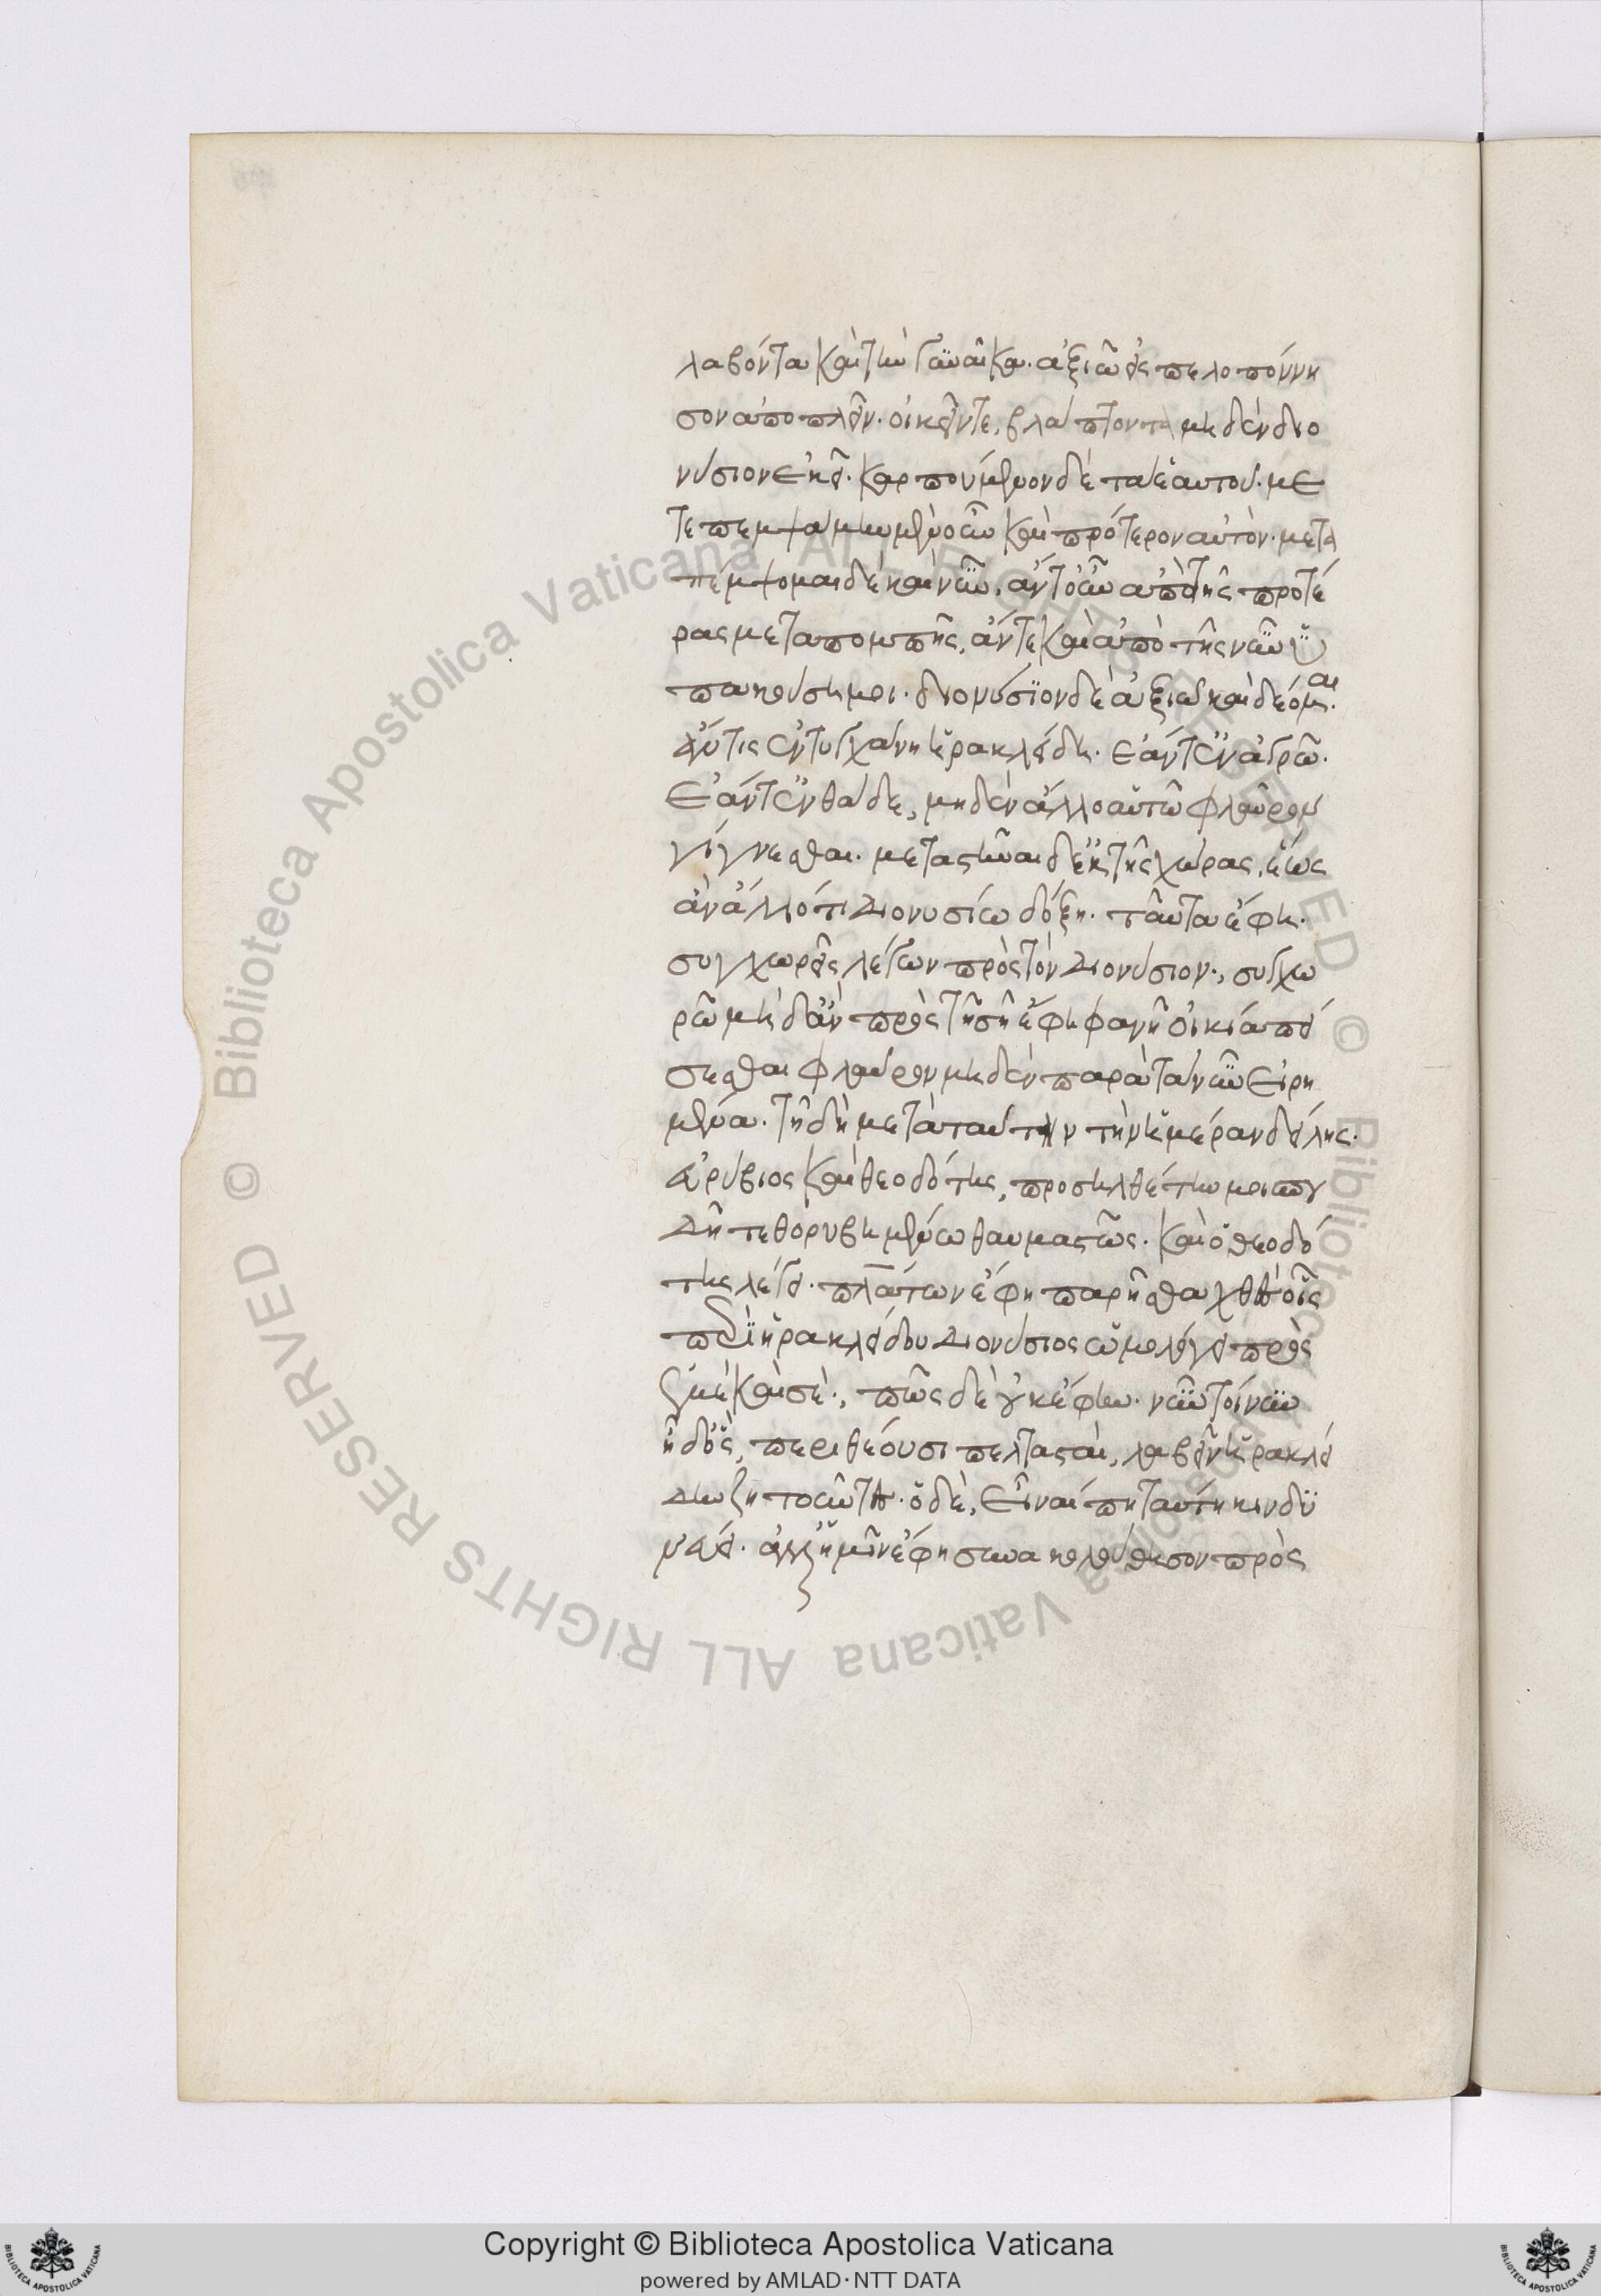 λαβόντα καὶ τὴν γυναῖκα. ἀξιῶ εἰς πελοπόννη
σον ἀποπλεῖν. οἰκεῖν τε, βλάπτοντα μηδὲν διο
νύσιον ἐκεῖ. καρπούμενον δὲ τὰ ἑαυτοῦ. με
τεπεμψάμην μὲν οὖν καὶ πρότερον αὐτόν. μετα
πέμψομαι δὲ καὶ νῦν. ἄντ' οὖν ἀπὸ τῆς προτέ
ρας μεταπομπῆς, ἄντε καὶ ἀπὸ τῆς νῦν ὑ
πακούσῃ μοι. διονύσιον δὲ ἀξιῶ καὶ δέομαι.
ἄν τις ἐντυγχάνῃ ἡρακλείδῃ. ἐάντ' ἐν ἀγρῷ.
ἐάντ' ἐνθάδε, μηδὲν ἄλλο αὐτῷ φλαῦρον
γίγνεσθαι. μεταστῆναι δ' ἐκ τῆς χώρας, ἕως
ἂν ἄλλό τι Διονυσίῳ δόξῃ. ταῦτα ἔφη.
συγχωρεῖς λέγων πρὸς τὸν Διονύσιον., συγχω
ρῶ μηδ' ἂν πρὸς τῇ σῇ ἔφη φανῇ οἰκίᾳ πεί
σεσθαι φλαῦρον μηδὲν παρὰ τὰ νῦν εἰρη
μένα. τῇ δὴ μετὰ ταύτην τὴν ἡμέραν δείλης.
εὐρύβιος καὶ θεοδότης, προσηλθέτην μοι σπου
δῇ τεθορυβημένω θαυμαστῶς. καὶ ὁ θεοδό
της λέγει. πλάτων ἔφη παρῆσθα χθὲς οἷς
περὶ ἡρακλείδου Διονύσιος ὡμολόγει πρὸς
ἐμὲ καὶ σέ., πῶς δὲ οὐκ ἔφην. νῦν τοίνυν
ἦ δ' ὅς, περιθέουσι πελτασταὶ, λαβεῖν ἡρακλεί
δην ζητοῦντες. ὁ δὲ, εἶναί πη ταύτῃ κινδυ
νεύει. ἀλλ' ἡμῖν ἔφη συνακολούθησον πρὸς